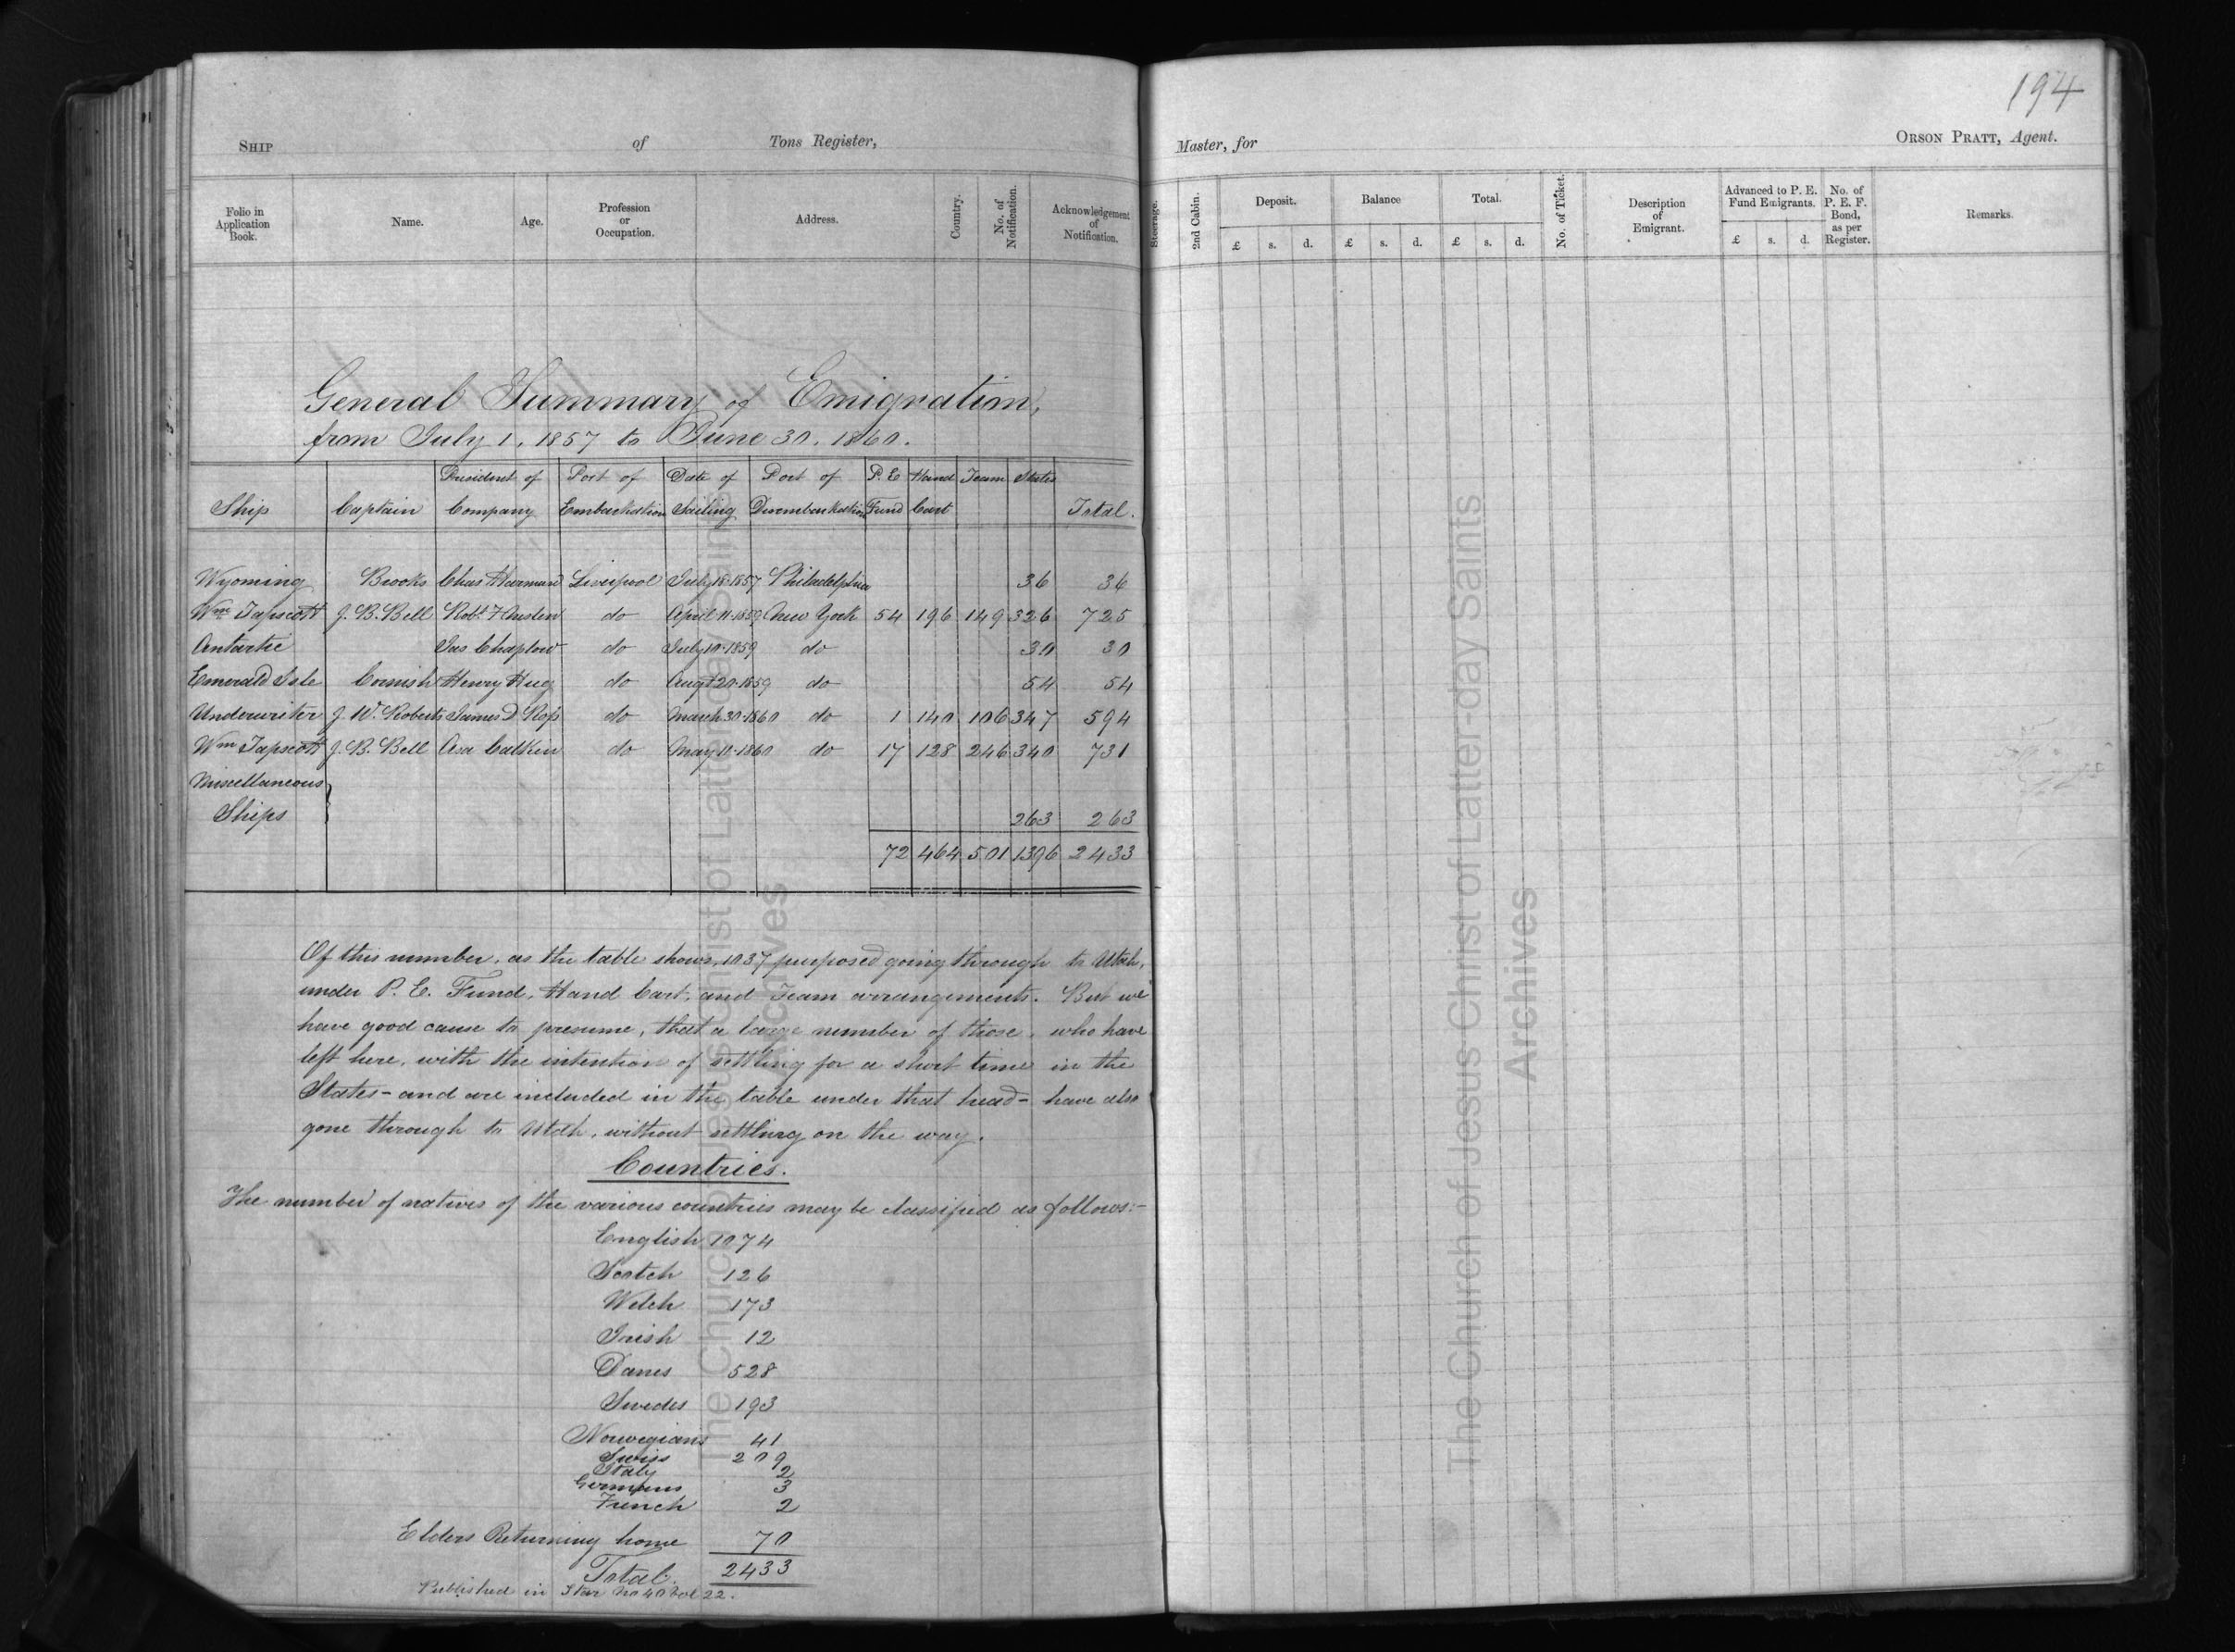 194
SHIP of Tons Register, Master, for ORSON PRATT, Agent.
Folio in Application Book. Name. Age. Profession or Occupation. Address. Country. No. of Notification. Acknowledgement of Notification. Steerage. 2nd Cabin. Deposit. Balance Total. No. of Ticket. Description of Emigrant. Advanced to P. E. Fund Emigrants. No. of P. E. F. Bond, as per Register. Remarks.
£ s. d. £ s. d. £ s. d. £ s. d.
General Summary of Emigration,
from July 1, 1857 to June 30, 1860.
President of Port of Date of Port of P. E Hand Team States
Ship Captain Company Embarkation Sailing Disembarkation Fund Cart Total.
Wyoming Brooks Chas Harmand Liverpool July 18-1857 Philadelphia 36 36
Wm Tapscott J. B. Bell Robt. F Neslen do April 11-1859 New York 54 196 149 326 725
Antartic Jas Chaplow do July 10-1859 do 30 30
Emerald Isle Cornish Henry Hug do Augt 20-1859 do 54 54
Underwriter J. W. Roberts James D Ross do March 30-1860 do 1 140 106 347 594
Wm Tapscott J. B. Bell Asa Calkin do May 11-1860 do 17 128 246 340 731
Miscellaneous
Ships 263 263
72 464 501 1396 2433
Of this number, as the table shows, 1037 purposed going through to Utah,
under P. E. Fund, Hand Cart, and Team arrangements. But we
have good cause to presume, that a large number of those, who have
left here, with the intention of settling for a short time in the
States - and are included in the table under that head - have also
gone through to Utah, without settling on the way.
Countries.
The number of natives of the various countries may be classified as follows:-
English 1074
Scotch 126
Welch 173
Irish 12
Danes 528
Swedes 193
Norwegians 41
Swiss 209
Italy 2
Germans 3
French 2
Elders Returning home 70
Total. 2433
Published in Star No 40 Vol 22.
The Church of Jesus Christ of Latter-day Saints
Archives
The Church of Jesus Christ of Latter-day Saints
Archives